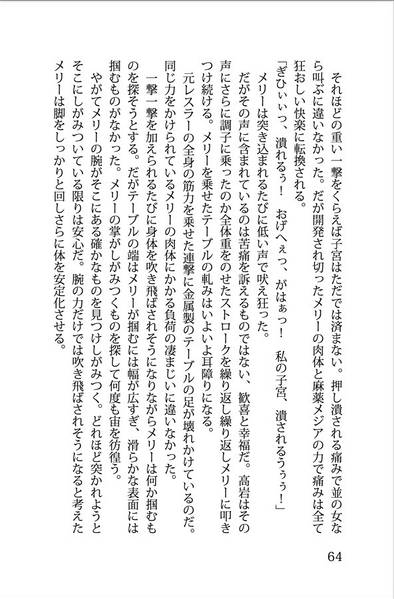 それほどの重い一撃をくらえば子宮はただでは済まない。押し潰される痛みで並の女な
ら叫ぶに違いなかった。だが開発され切ったメリーの肉体と麻薬メジアの力で痛みは全て
狂おしい快楽に転換される。
「ぎひぃぃっ、潰れるぅ！　おげへぇっ、がはぁっ！　私の子宮、潰されるうぅぅ！」
メリーは突き込まれるたびに低い声で吠え狂った。
だがその声に含まれているのは苦痛を訴えるものではない、歓喜と幸福だ。高岩はその
声にさらに調子に乗ったのか全体重をのせたストロークを繰り返し繰り返しメリーに叩き
つけ続ける。メリーを乗せたテーブルの軋みはいよいよ耳障りになる。
元レスラーの全身の筋力を乗せた連撃に金属製のテーブルの足が壊れかけているのだ。
同じ力をかけられているメリーの肉体にかかる負荷の凄まじいに違いなかった。
一撃一撃を加えられるたびに身体を吹き飛ばされそうになりながらメリーは何か掴むも
のを探そうとする。だがテーブルの端はメリーが掴むには幅が広すぎ、滑らかな表面には
掴むものがなかった。メリーの掌がしがみつくものを探して何度も宙を彷徨う。
やがてメリーの腕がそこにある確かなものを見つけしがみつく。どれほど突かれようと
そこにしがみついている限りは安心だ。腕の力だけでは吹き飛ばされそうになると考えた
メリーは脚をしっかりと回しさらに体を安定化させる。
64